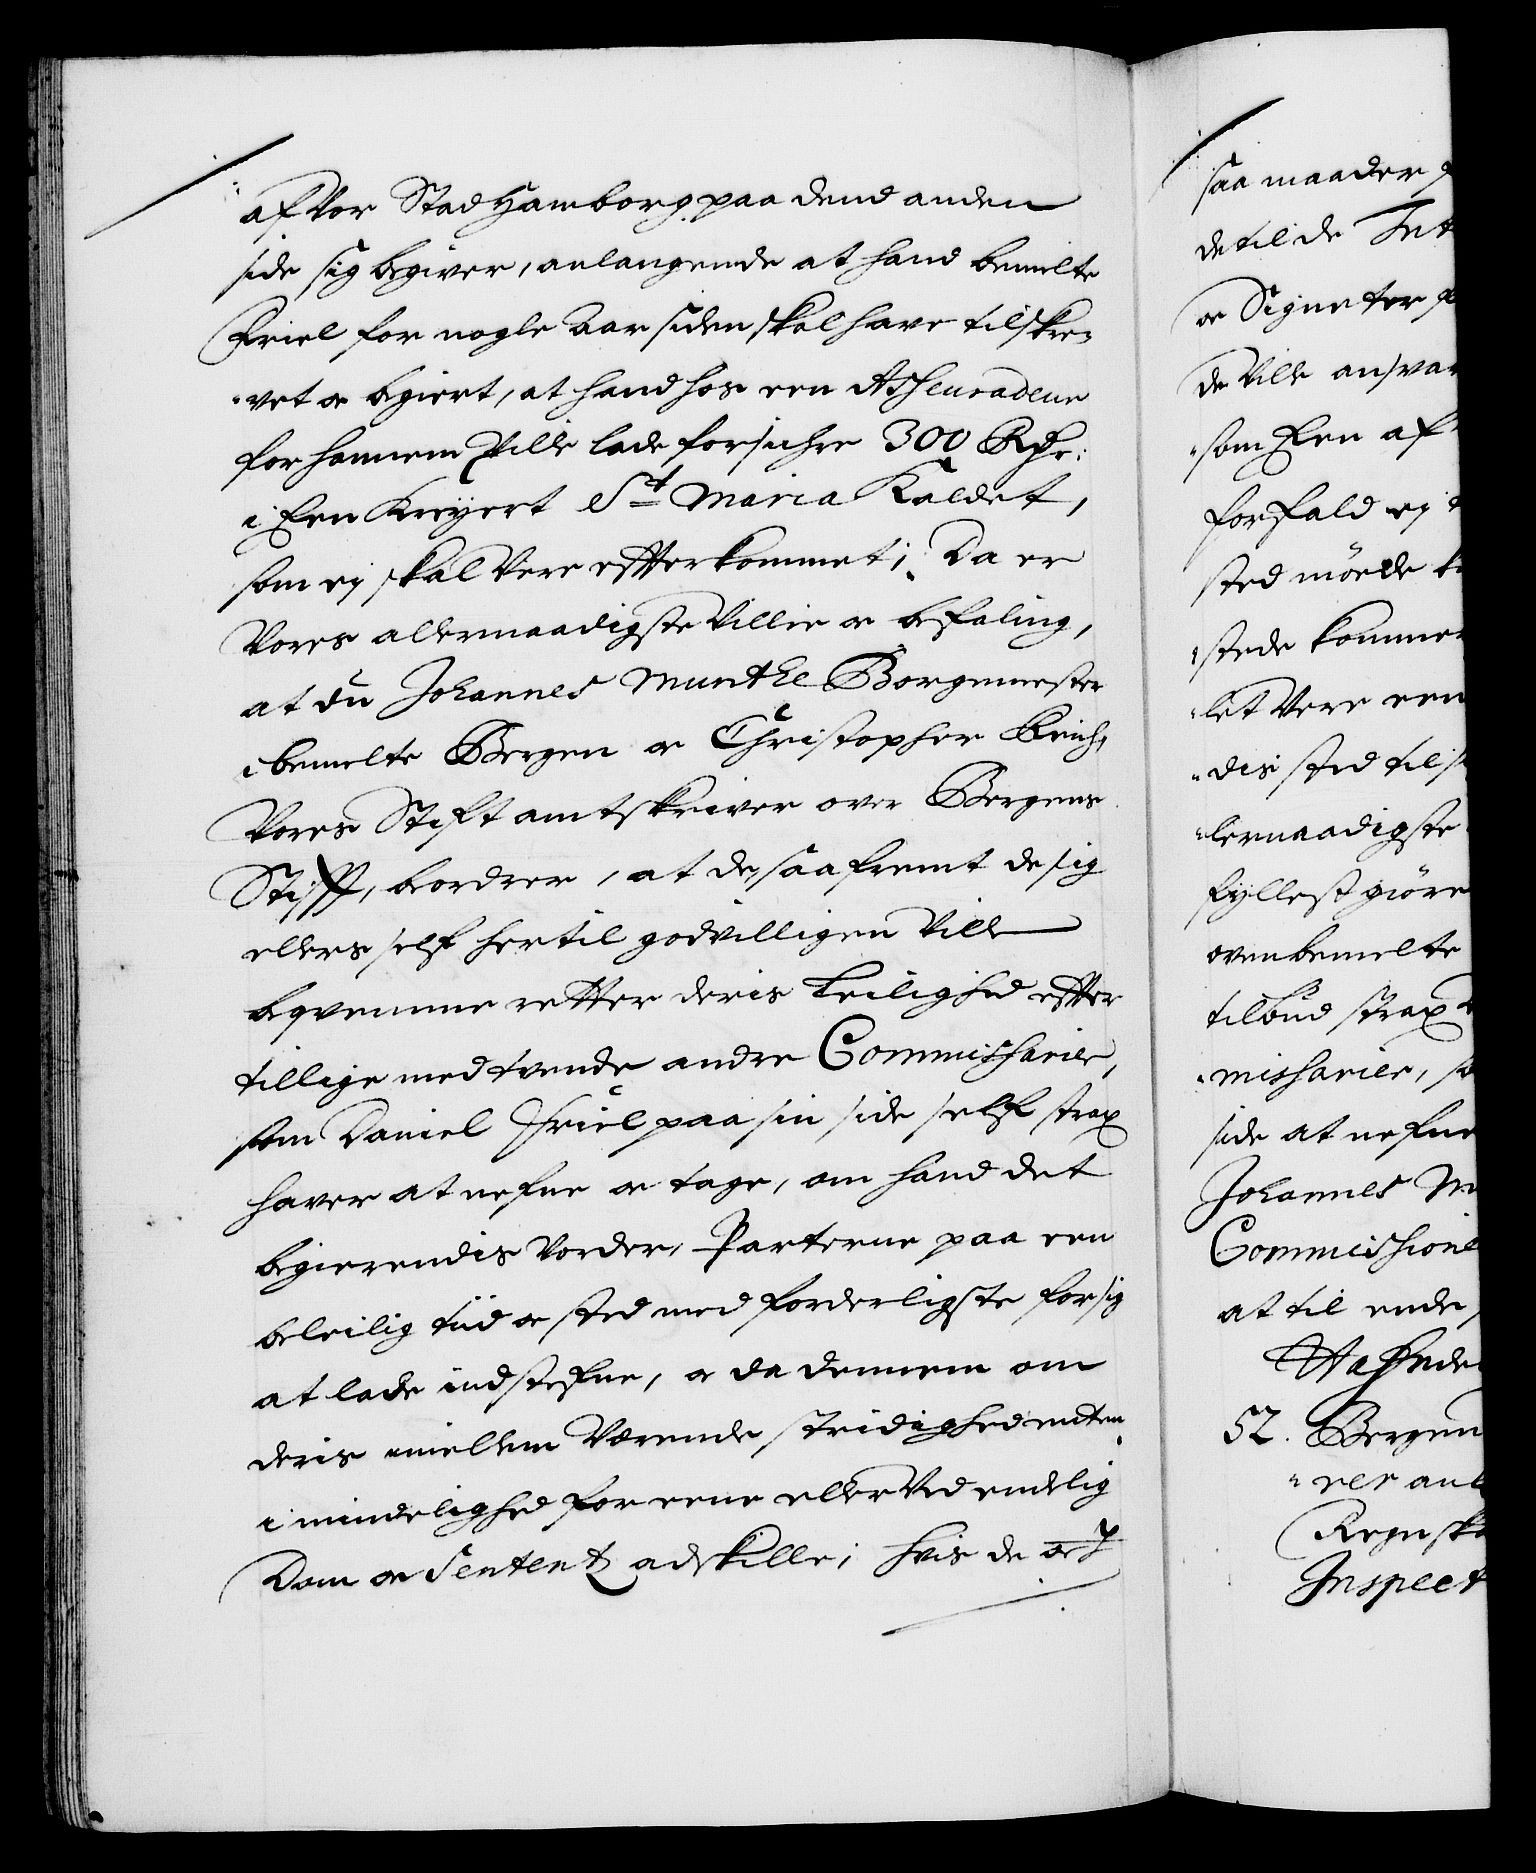 af Vor Stad Hamborg paa dend anden
side sig begiver, anlangende at hand bemelte
Friel for nogle Aar siden skal have tilskre-
-vet oc begiert, at hand hos een Asseuradeur
for hannem Ville lade forsichre 300 Rdr:
i Een Kreyert St Maria Kaldet,
som ej skal Vere effterkommet; Da er
Vores allernaadigste Villie oc befaling,
at du Johannes Munthe Borgemester
i bemelte Bergen oc Christopher
Vores Stiftamtskriver over Bergens
Stifft, beordrer, at de, saafremt de sig
ellers self hertil godvilligen Ville
beqvemme retter deris Leilighed effter
tillige med tvende andre Commissarier,
som Daniel Friel paa sin side self strax
haver at nefne oc tage, om hand det
begierendis Vorder, Parterne paa een
beleilig tiid oc sted med forderligste for sig
at lade indstefne, oc da dennem om
deris imellem Værende stridighed enten
i mindelighed foreene eller Ved endelig
Dom oc Sententz adskille; hvis de oc J
saa maader
det il de
oc Signeter
de Ville ansvar
-som Een af
forfald ej
sted møede
-stede komme
-let Vere een
-dis sted til
-lernaadigste
fyllest giøre
ovenbemelte
tilbud strax
-missarier,
side at nefne
Johannes M
Commissione
at til ende,
Hafnde
52. Bergen
Regnska
Inspect